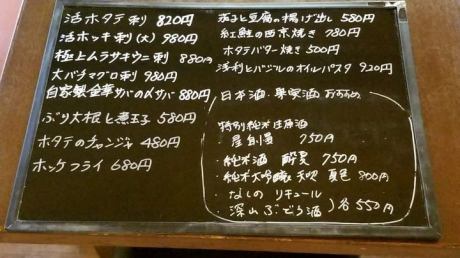 活ホタテ刺 820円
活ホッキ刺(大) 980円
極上ムラサキウニ刺 880円
大バチマグロ刺 980円
自家製金華サバの〆サバ 880円
ぶり大根と煮玉子 580円
ホタテのチャンジャ 480円
ホッケフライ 680円
茄子と豆腐の揚げ出し 580円
紅鮭の西京焼き 780円
ホタテバター焼き 500円
浅利とバジルのオイルパスタ 920円
日本酒・果実酒 おすすめ
特別純米生原酒
・屋 自慢 750円
・純米酒 酔夏 750円
・純米大吟醸 天吹 夏色 800円
・なしの リキュール
・深山ぶどう酒 ) 各550円